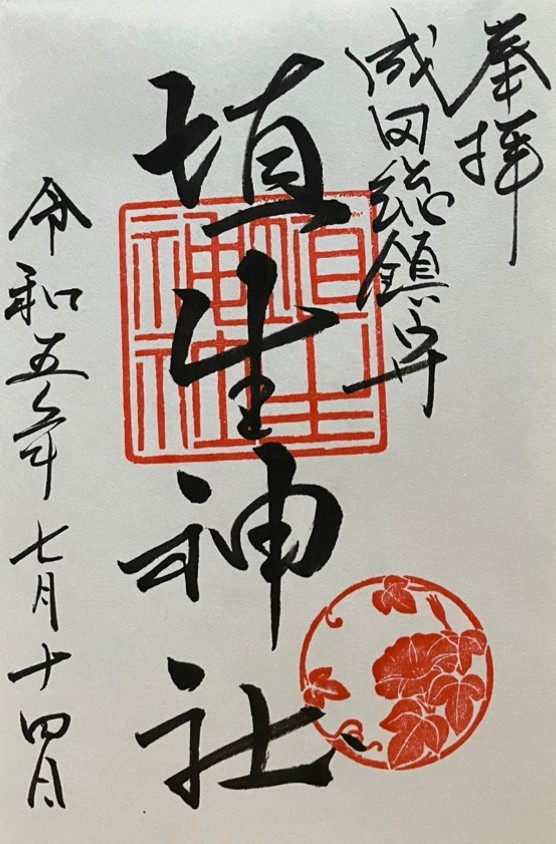 奉拝
成田総鎮守
埴生神社
埴生
神社
令和五年七月十四日